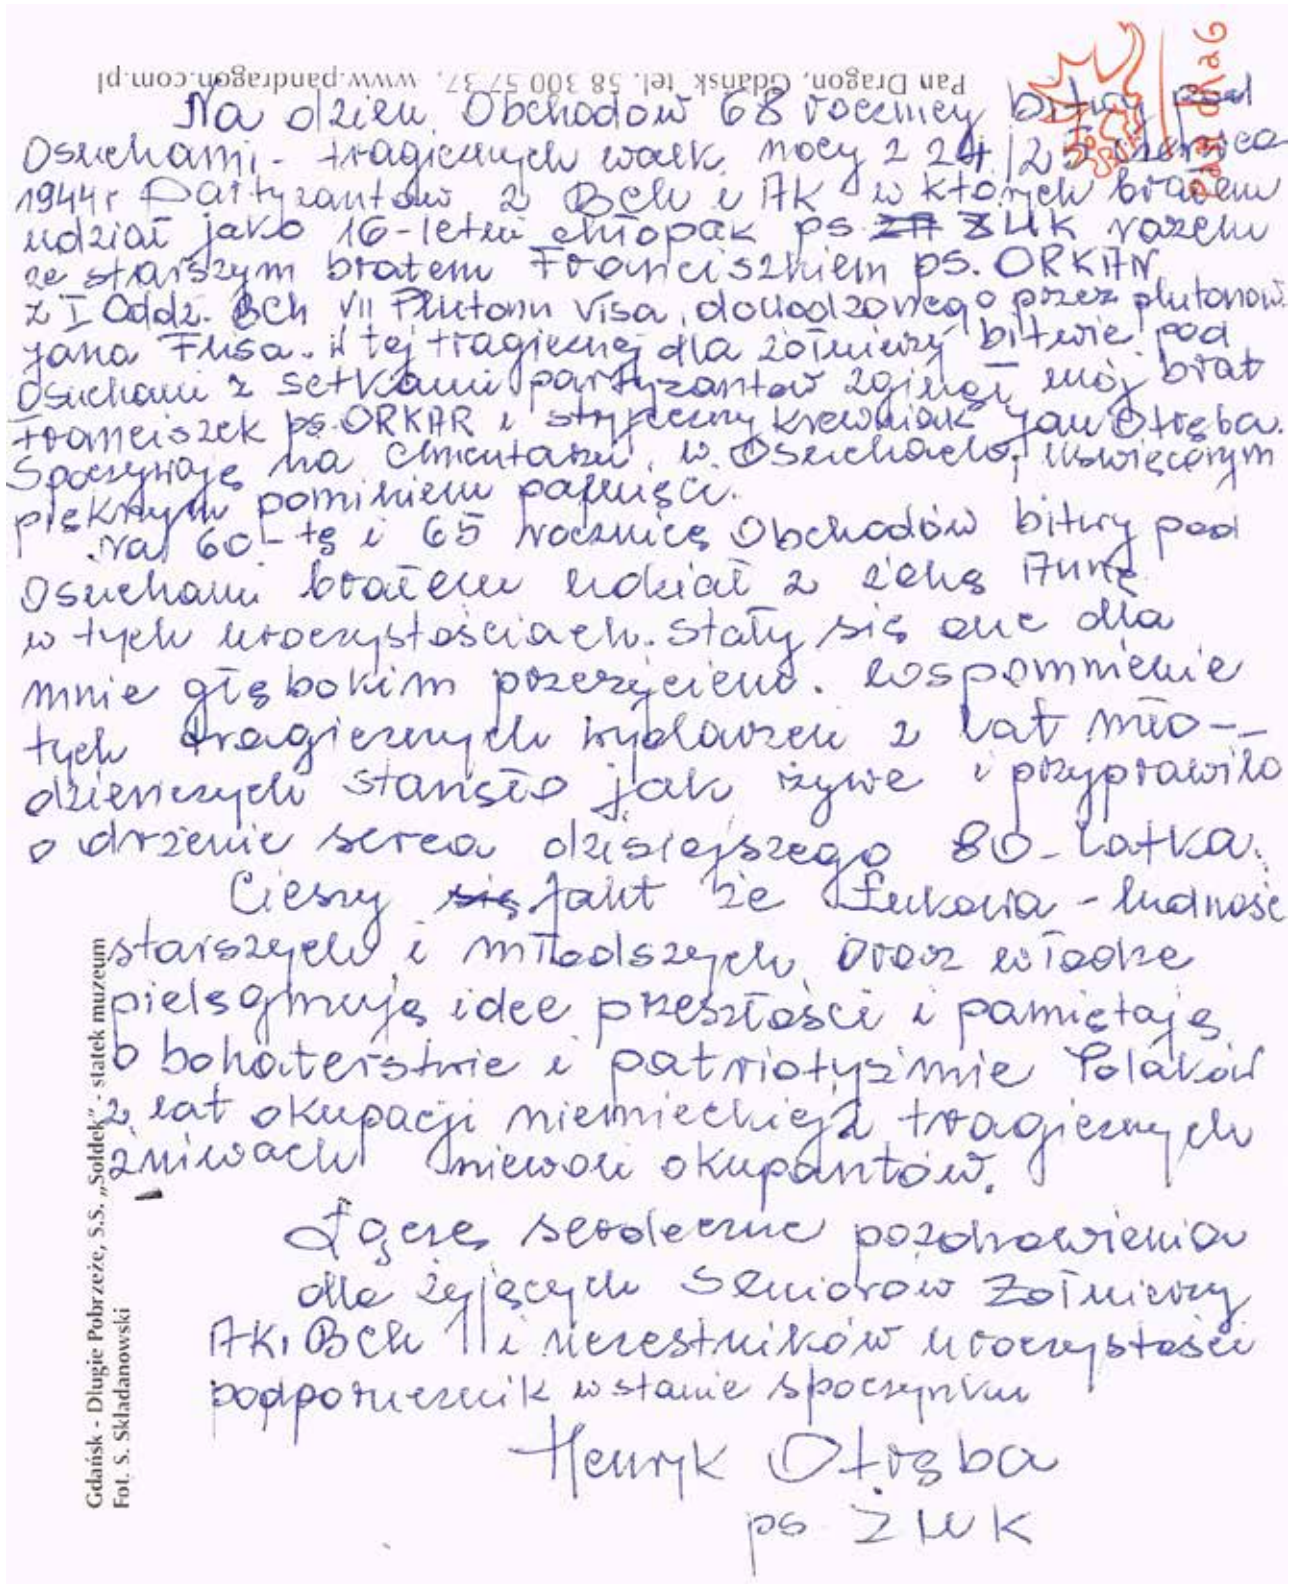 Pan Dragon, Gdańsk, tel. 58 300 57 37, www.pandragon.com.pl
Na dzień Obchodów 68 rocznicy bitwy pod
Osuchami, - tragicznych walk, nocy z 24/25 czerwca
1944r Partyzantów z BCh i AK w których brałem
udział jako 16-letni chłopak ps. ŻUK razem
ze starszym bratem Franciszkiem ps. ORKAN
z I Oddz. BCh VII Plutonu Visa, dowodzonego przez plutonow.
Jana Fusa. W tej tragicznej dla żołnierzy bitwie pod
Osuchami z setkami partyzantów zginął mój brat
Franciszek ps. ORKAR i stryjeczny krewniak Jan Otręba.
Spoczywają na cmentarzu, w Osuchach, uświęconym
pięknym pomnikiem pamięci.
Na 60-tą i 65 rocznicę Obchodów bitwy pod
Osuchami brałem udział z żoną Anną
w tych uroczystościach. Stały się one dla
mnie głębokim przeżyciem. Wspomnienie
tych tragicznych wydarzeń z lat mło-
dzieńczych stanęło jak żywe i przyprawiło
o drżenie serca dzisiejszego 80-latka.
Cieszy fakt że Łukowa - ludność
starszych i młodszych oraz władze
pielęgnują idee przeszłości i pamiętają
o bohaterstwie i patriotyźmie Polaków
z lat okupacji niemieckiej z tragicznych
żniwach niewoli okupantów.
Łączę serdeczne pozdrowienia
dla żyjących Seniorów Żołnierzy
AK, BCh i uczestników uroczystości
podporucznik w stanie spoczynku
Henryk Otręba
ps. ŻUK
Gdańsk - Długie Pobrzeże, S.S. „Sołdek” - statek muzeum
Fot. S. Składanowski